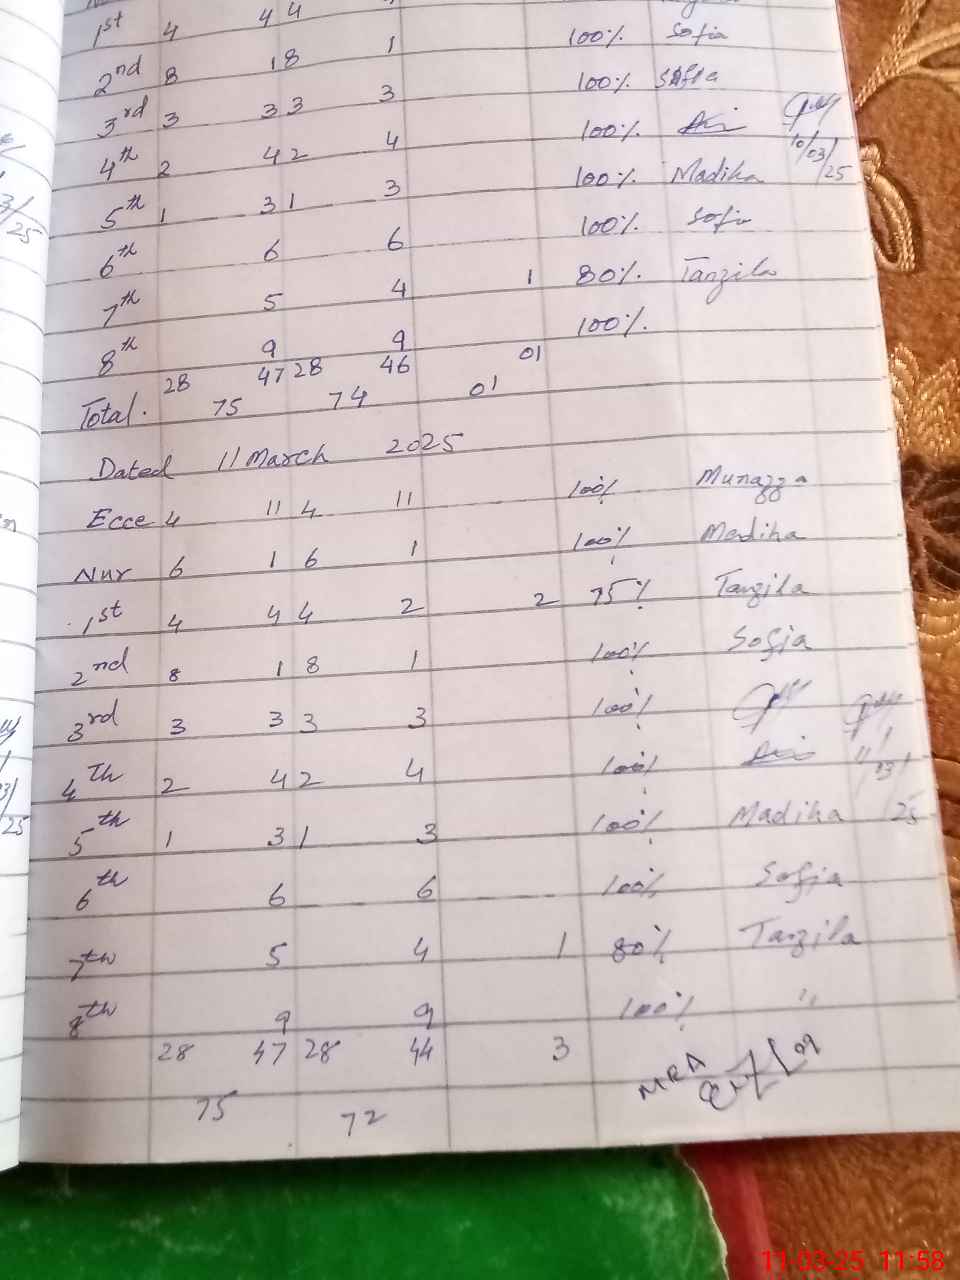 1st 4 4 4
2nd 8 1 8 1 100% Sofia
3rd 3 3 3 3 100% Sofia
4th 2 4 2 4 100% 10/03/25
5th 1 3 1 3 100% Madiha
6th 6 6 100% Sofia
7th 5 4 1 80% Tanzila
8th 9 9 100%
28 47 28 46 01
Total. 75 74 01
Dated 11 March 2025
Ecce 4 11 4 11 100% Munazza
Nur 6 1 6 1 100% Madiha
1st 4 4 4 2 2 75% Tanzila
2nd 8 1 8 1 100% Sofia
3rd 3 3 3 3 100%
4Th 2 4 2 4 100% 11/03/25
5th 1 3 1 3 100% Madiha
6th 6 6 100% Sofia
7th 5 4 1 80% Tanzila
8th 9 9 100% "
28 47 28 44 3
MEA
75 72
11-03-25 11:58